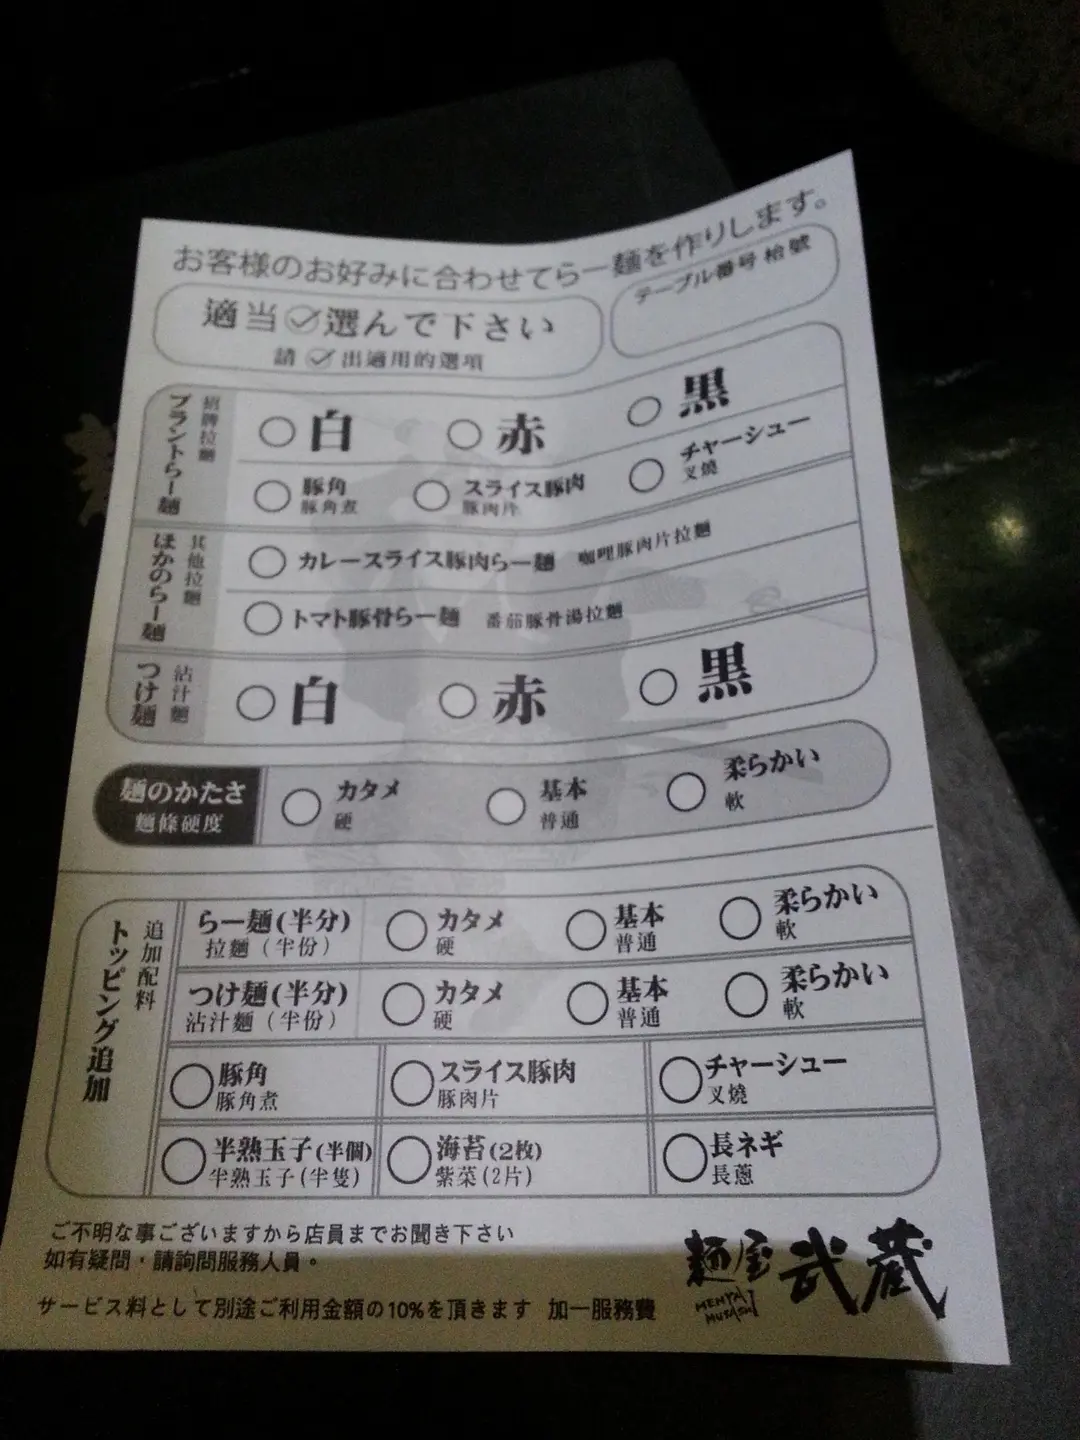 お客様のお好みに合わせてらー麺を作りします。
テーブル番号 枱號
適当✓選んで下さい
請✓出適用的選項
ブラントらー麺
招牌拉麵
白
赤
黒
豚角
豚角煮
スライス豚肉
豚肉片
チャーシュー
叉燒
ほかのらー麺
其他拉麵
カレースライス豚肉らー麺 咖哩豚肉片拉麵
トマト豚骨らー麺 番茄豚骨湯拉麵
つけ麺
沾汁麵
白
赤
黒
麺のかたさ
麵條硬度
カタメ
硬
基本
普通
柔らかい
軟
トッピング追加
追加配料
らー麺(半分)
拉麵（半份）
カタメ
硬
基本
普通
柔らかい
軟
つけ麺(半分)
沾汁麵（半份）
カタメ
硬
基本
普通
柔らかい
軟
豚角
豚角煮
スライス豚肉
豚肉片
チャーシュー
叉燒
半熟玉子(半個)
半熟玉子(半隻)
海苔(2枚)
紫菜(2片)
長ネギ
長蔥
ご不明な事ございますから店員までお聞き下さい
如有疑問，請詢問服務人員。
サービス料として別途ご利用金額の10%を頂きます 加一服務費
麺屋武蔵
MENYA
MUSASHI